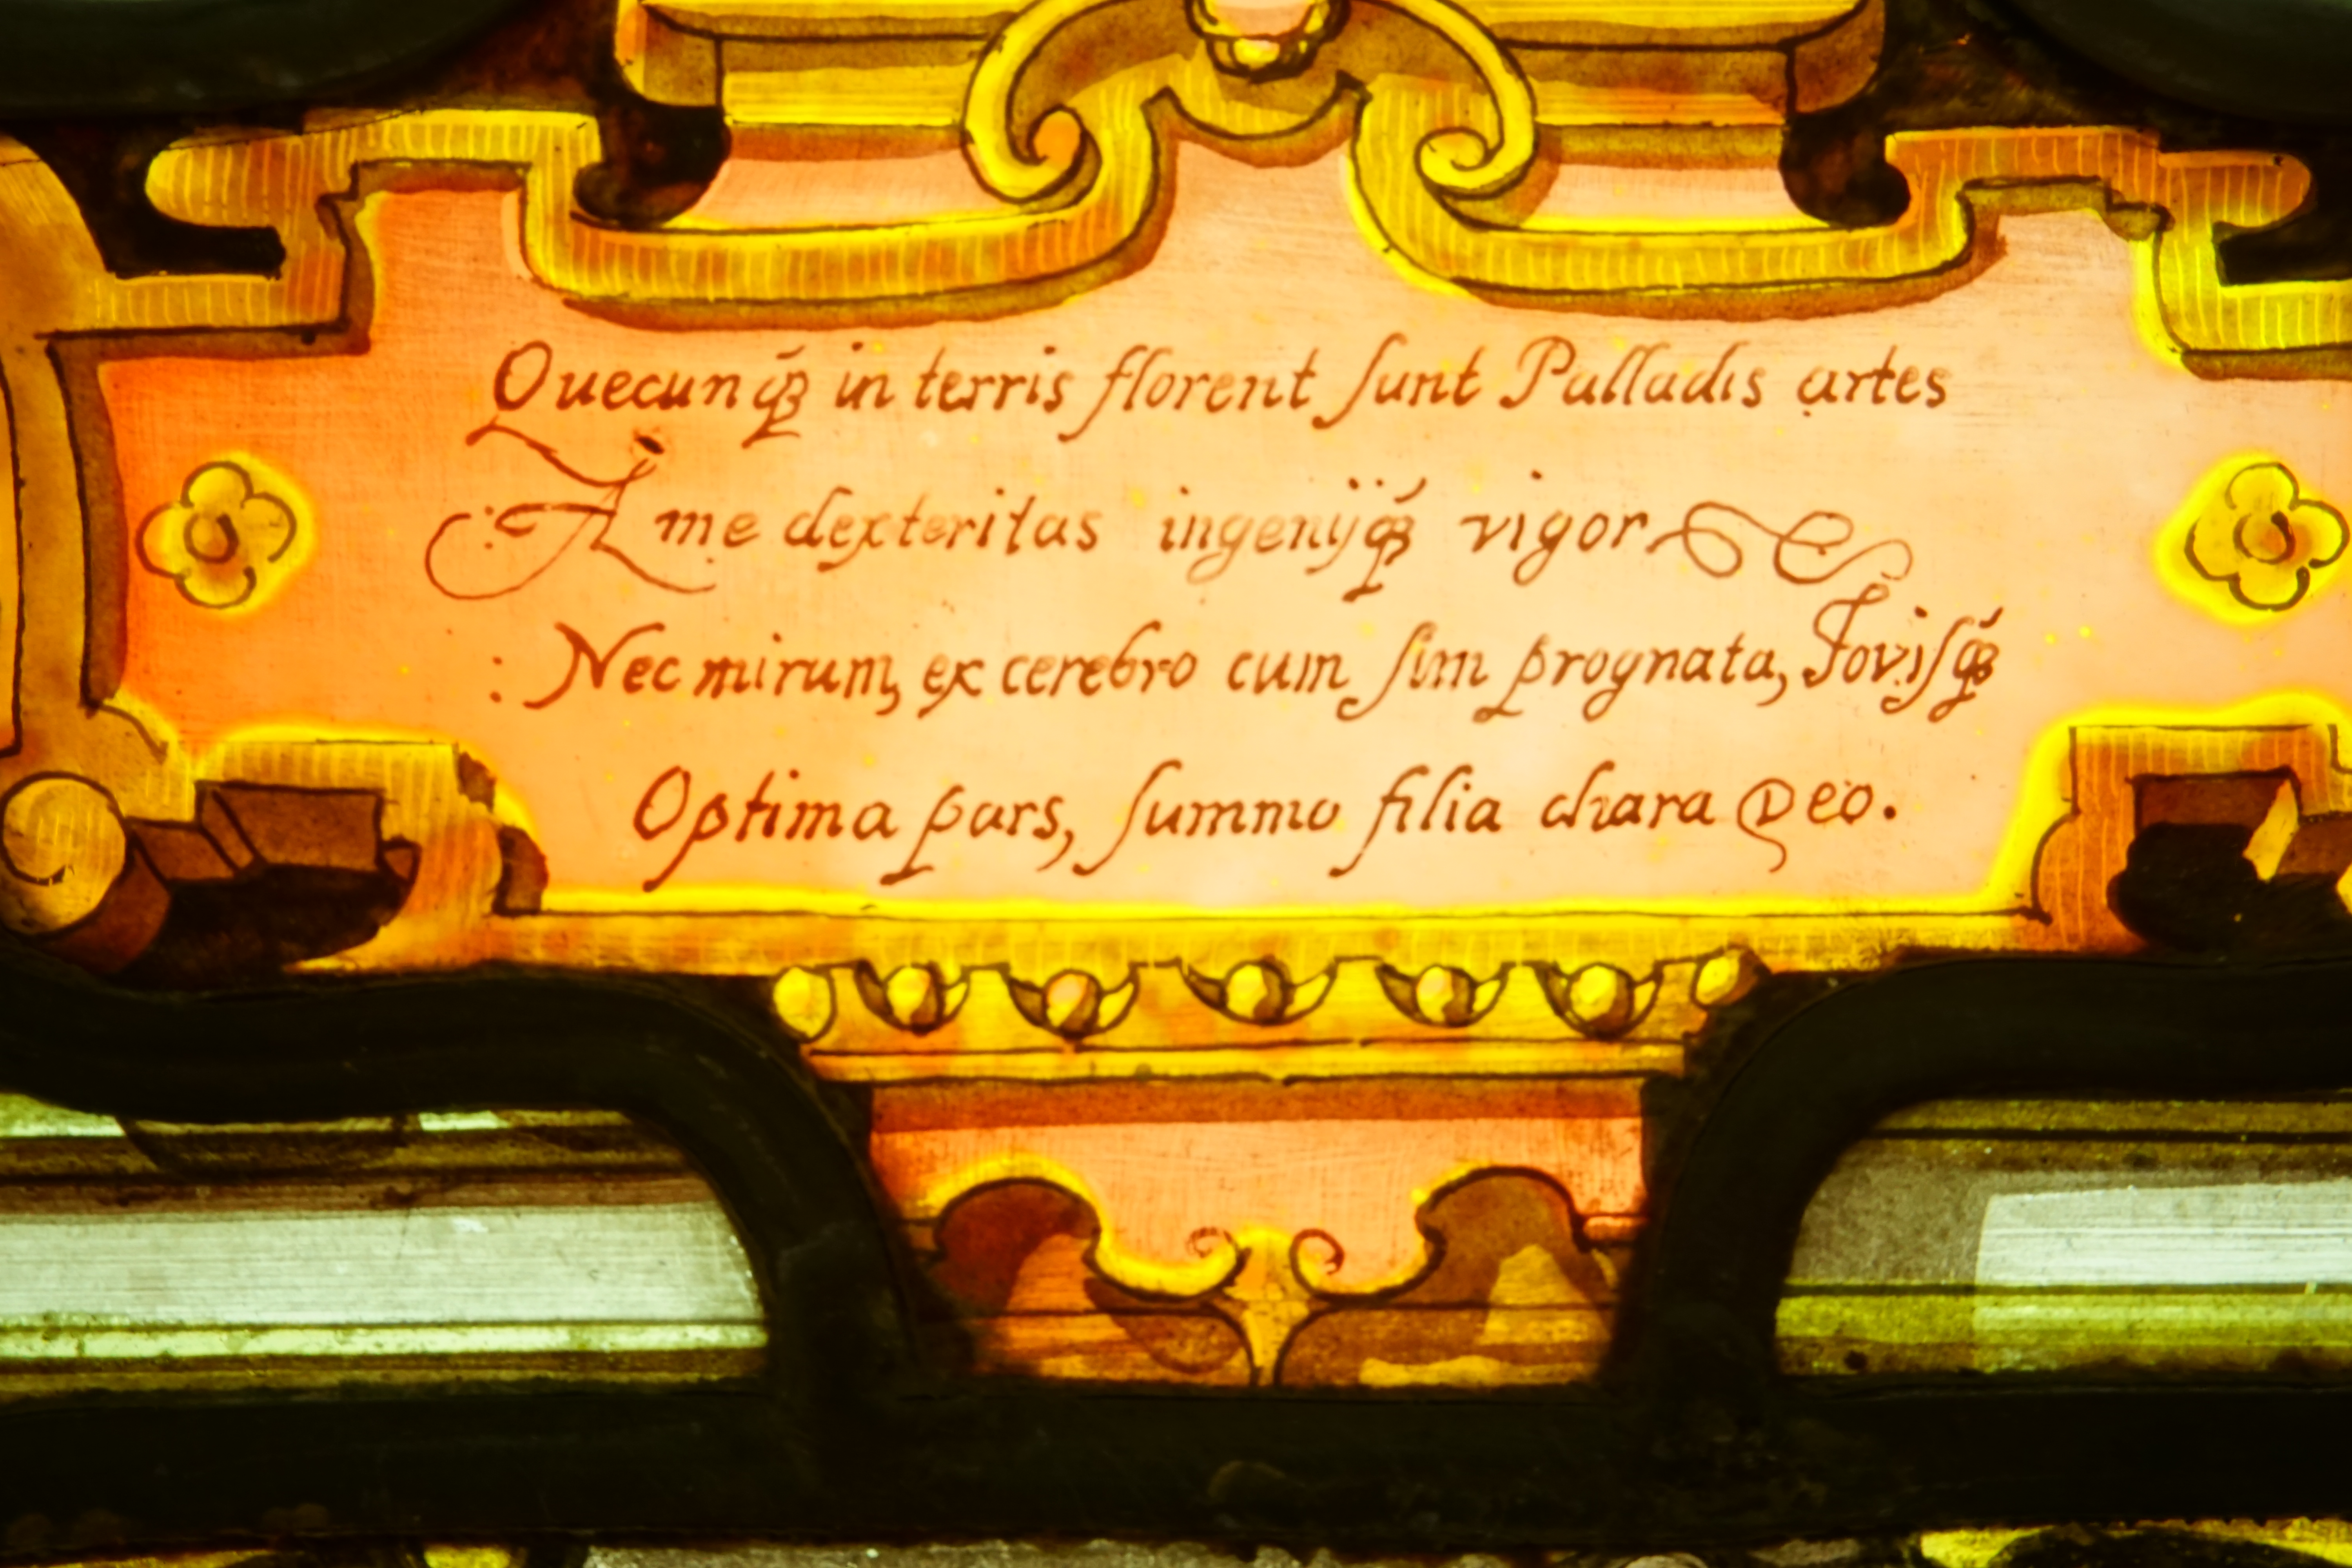 Quecunqꝫ́ in terris florent ſunt Palladis artes
A me dexteritas ingenijqꝫ́ vigor
: Nec mirum, ex cerebro cum ſim prognata, Joviſqꝫ́
Optima pars, ſummo filia chara Deo.